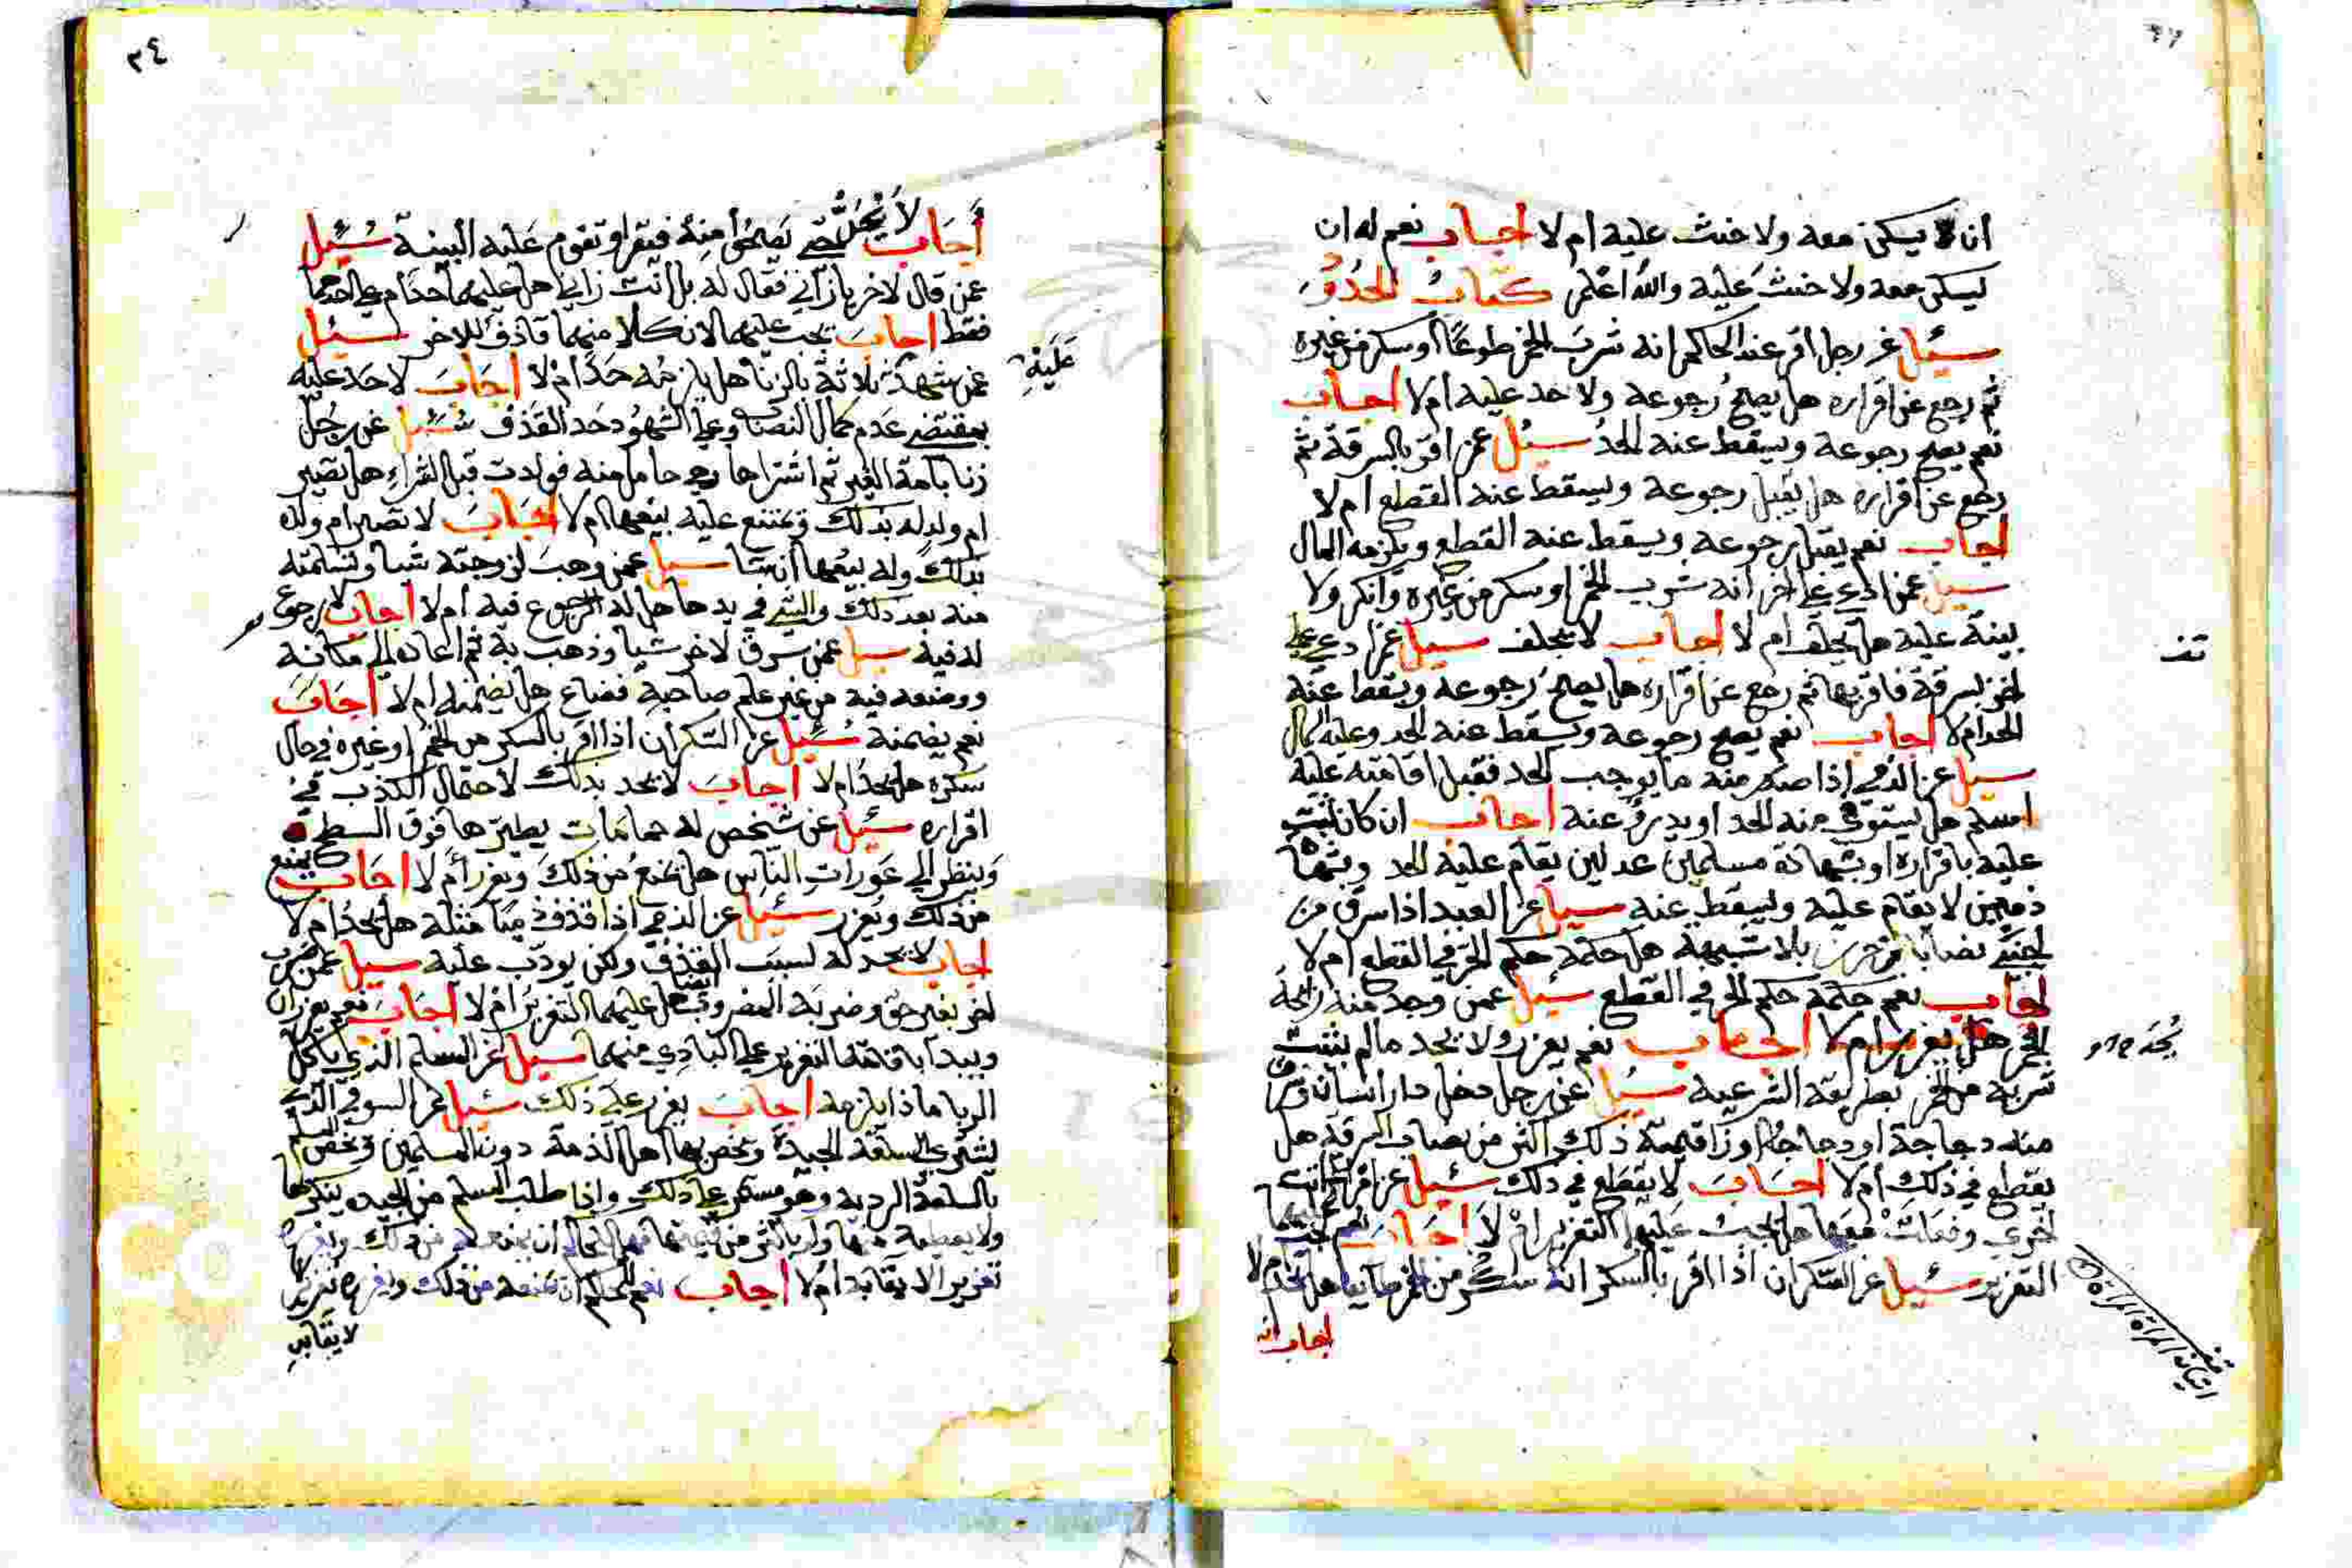 ان يسكن معه ولا حنث عليه ام لا اجاب نعم له ان
يسكن معه ولا حنث عليه والله اعلم كتاب الحدود
سئل عن رجل اقر عند الحاكم انه شرب الخمر طوعا او سكر من غيره
ثم رجع عن اقراره هل يصح رجوعه ولا حد عليه ام لا اجاب
نعم يصح رجوعه ويسقط عنه الحد سئل عمن اقر بالسرقة ثم
رجع عن اقراره هل يقبل رجوعه ويسقط عنه القطع ام لا
اجاب نعم يقبل رجوعه ويسقط عنه القطع ويلزمه المال
سيل عمن ادعي علي اخر انه شرب الخمر او سكر من غيره وانكر ولا
بينة عليه هل يحلف ام لا اجاب لا يحلف سيل عمن ادعي علي
اخر بسرقة فاقر بها ثم رجع عن اقراره هل يصح رجوعه ويسقط عنه
الحد ام لا اجاب نعم يصح رجوعه ويسقط عنه الحد وعليه المال
سيل عن الذمي اذا صدر منه ما يوجب الحد فقبل اقامته عليه
اسلم هل يستوفي منه الحد او يدرؤ عنه اجاب ان كان ثبت
عليه باقراره او بشهادة مسلمين عدلين يقام عليه الحد وبشهادة
ذميين لا يقام عليه ويسقط عنه سيل عن العبد اذا سرق من
اجنبي نصابا من حرز بلا شبهة هل حكمه حكم الحر في القطع ام لا
اجاب نعم حكمه حكم الحر في القطع سئل عمن وجد منه رائحة
الخمر هل يعزر ام لا اجاب نعم يعزر ولا يحد ما لم يثبت
شربه من الخمر بطريقه الشرعيه سئل عن رجل دخل دار انسان وسرق
منه دجاجة او دجاجا او وزا قيمة ذلك اكثر من نصاب السرقة هل
يقطع في ذلك ام لا اجاب لا يقطع في ذلك سئل عن امراة اتت
اخري وفعلت معها هل يجب عليهما التعزير ام لا اجاب نعم يجب عليهما
التعزير سئل عن السكران اذا اقر بالسكر انه سكر من الخمر هل يحد ام لا
اجاب انه
تف
اتيان المراة المراة
٣٤
اجاب لا يحد حتي يصحي منه فيقر او تقوم عليه البينة سئل
عمن قال لاخر يا زاني فقال له بل انت زاني هل عليهما حد ام علي احدهما
فقط اجاب يجب عليهما لان كلا منهما قاذف للاخر سئل
عمن شهد ثلاثة بالزنا هل يلزمه حد ام لا اجاب لا حد عليه
عليه
بمقتضي عدم كمال النصاب وعلي الشهود حد القذف سئل عن رجل
زنا بامة الغير ثم اشتراها وهي حامل منه فولدت قبل الشراء هل تصير
ام ولد له بذلك ويمتنع عليه بيعها ام لا اجاب لا تصير ام ولده
بذلك وله بيعها ان شا سيل عمن وهب لزوجته شيا وتسلمته
منه بعد ذلك والشي في يدها هل له الرجوع فيه ام لا اجاب لا رجوع
له فيه سيل عمن سرق لاخر شيا وذهب به ثم اعاده الي مكانه
ووضعه فيه من غير علم صاحبه فضاع هل يضمنه ام لا اجاب
نعم يضمنه سئل عن السكران اذا اقر بالسكر من الخمر او غيره في حال
سكره هل يحد ام لا اجاب لا يحد بذلك لاحتمال الكذب في
اقراره سئل عن شخص له حمامات يطيرها فوق السطح
وينظر الي عورات الناس هل يمنع من ذلك ويعزر ام لا اجاب يمنع
من ذلك ويعزر سئل عن الذمي اذا قذف ذميا مثله هل يحد ام لا
اجاب لا يحد له لسبب القذف ولكن يودب عليه سيل عمن ضرب
اخر بغير حق وضربه المضروب ايضا هل عليهما التعزير ام لا اجاب نعم يعزران
ويبدا باقامة التعزير علي البادي منهما سيل عن المسلم الذي ياكل
الربا ماذا يلزمه اجاب يعزر علي ذلك سئل عن السوقي الذي
يشتري السلعة الجيدة ويخص بها اهل الذمة دون المسلمين ويخص المسلم
بالسلعة الردية وهو مستمر علي ذلك واذا طلب المسلم من الجيده ينكرها
ولا يعطيه منها ولو باكثر من قيمتها فهل للحاكم ان يمنعه من ذلك ويعزره
تعزيرا لايقا به ام لا اجاب نعم للحاكم ان يمنعه من ذلك ويعزره تعزيرا
لايقا به